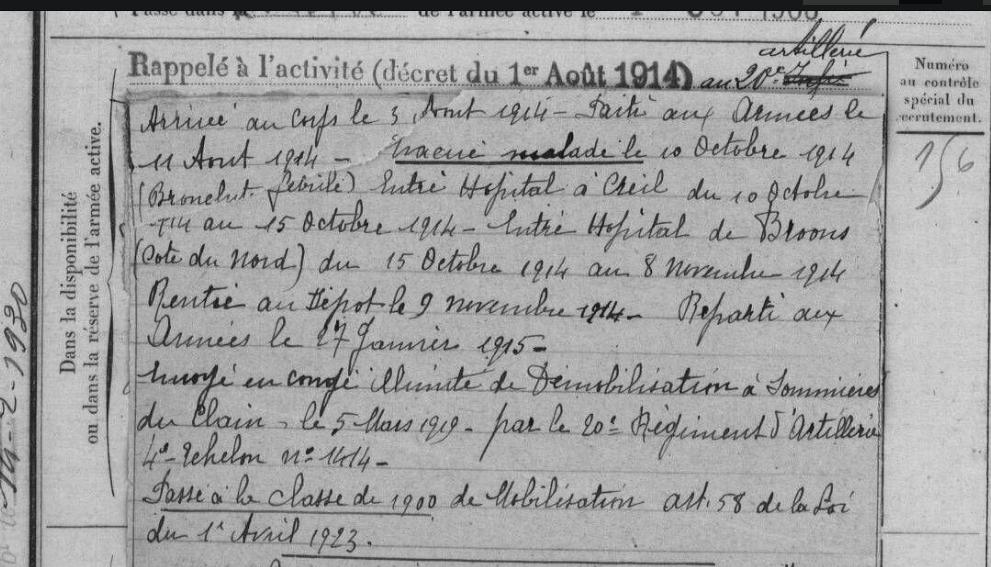 Passé dans la de l'armée active le 1
Rappelé à l'activité (décret du 1er Août 1914) au 20e artillerie
Numéro
au contrôle
spécial du
recrutement.
156
Dans la disponibilité
ou dans la réserve de l'armée active.
Arrivé au Corps le 3 Aout 1914 - Parti aux Armées le
11 Aout 1914 - Evacué malade le 10 Octobre 1914
(Bronchit. fébrile) Entré Hopital à Creil du 10 Octobre
1914 au 15 Octobre 1914 - Entré Hopital de Broons
(Cote du Nord) du 15 Octobre 1914 au 8 novembre 1914
Rentré au Dépot le 9 novembre 1914 - Reparti aux
Armées le 27 Janvier 1915 -
Envoyé en congé illimité de Démobilisation à Sommières
du Clain - le 5 Mars 1919 - par le 20e Régiment d'Artillerie
4e Echelon no 1414 -
Passé à la classe de 1900 de Mobilisation art. 58 de la Loi
du 1er Avril 1923.
14-2-1930